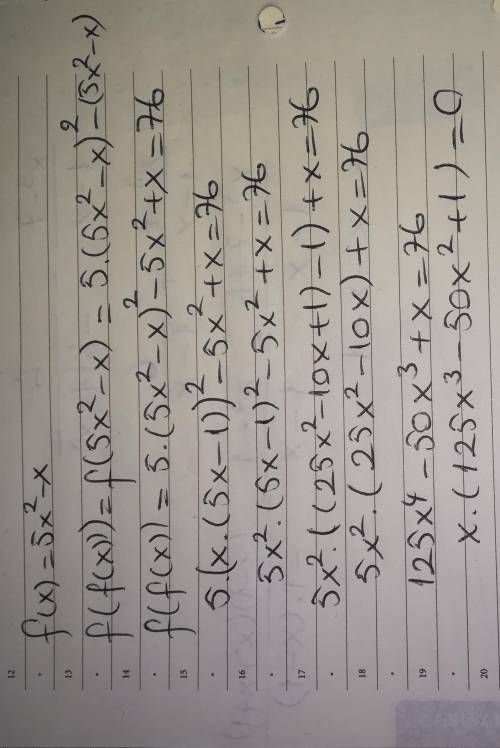 12
f(x) = 5x²-x
13
f(f(x)) = f(5x²-x) = 5.(5x²-x)²-(5x²-x)
14
f(f(x)) = 5.(5x²-x)²-5x²+x=76
15
5.(x.(5x-1))²-5x²+x=76
16
5x².(5x-1)²-5x²+x=76
17
5x².((25x²-10x+1)-1)+x=76
18
5x².(25x²-10x)+x=76
19
125x⁴-50x³+x=76
20
x.(125x³-50x²+1)=0